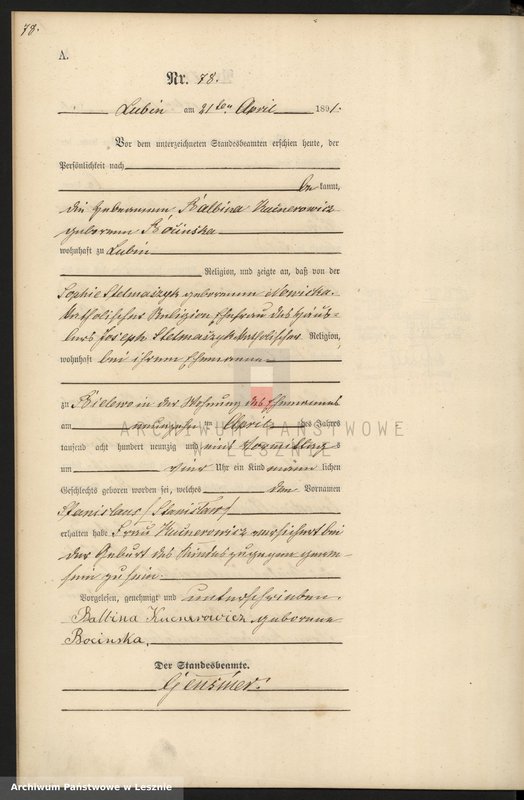 78.
A.
Nr. 78.
Lubin am 21ten April 1891.
Vor dem unterzeichneten Standesbeamten erschien heute, der
Persönlichkeit nach
be kannt,
die Hebeamme Balbina Kucnerowicz
geborene Bocinska
wohnhaft zu Lubin
Religion, und zeigte an, daß von der
Sophie Stelmaszyk geborenen Nowicka,
katholischer Religion, Ehefrau des Häus-
lers Joseph Stelmaszyk katholischer Religion,
wohnhaft bei ihrem Ehemanne
zu Bielewo in der Wohnung des Ehemannes
am April des Jahres
tausend acht hundert neunzig und eins Vormittags
um vier Uhr ein Kind männ lichen
Geschlechts geboren worden sei, welches den Vornamen
Stanislaus (Stanisław)
erhalten habe. Frau Kucnerowicz versichert bei
der Geburt des Kindes zugegen gewe-
sen zu sein.
Vorgelesen, genehmigt und unterschrieben.
Balbina Kucnerowicz, geborene
Bocinska,
Der Standesbeamte.
Gensmer.
ARCHIWUM PAŃSTWOWE
W LESZNIE
Archiwum Państwowe w Lesznie